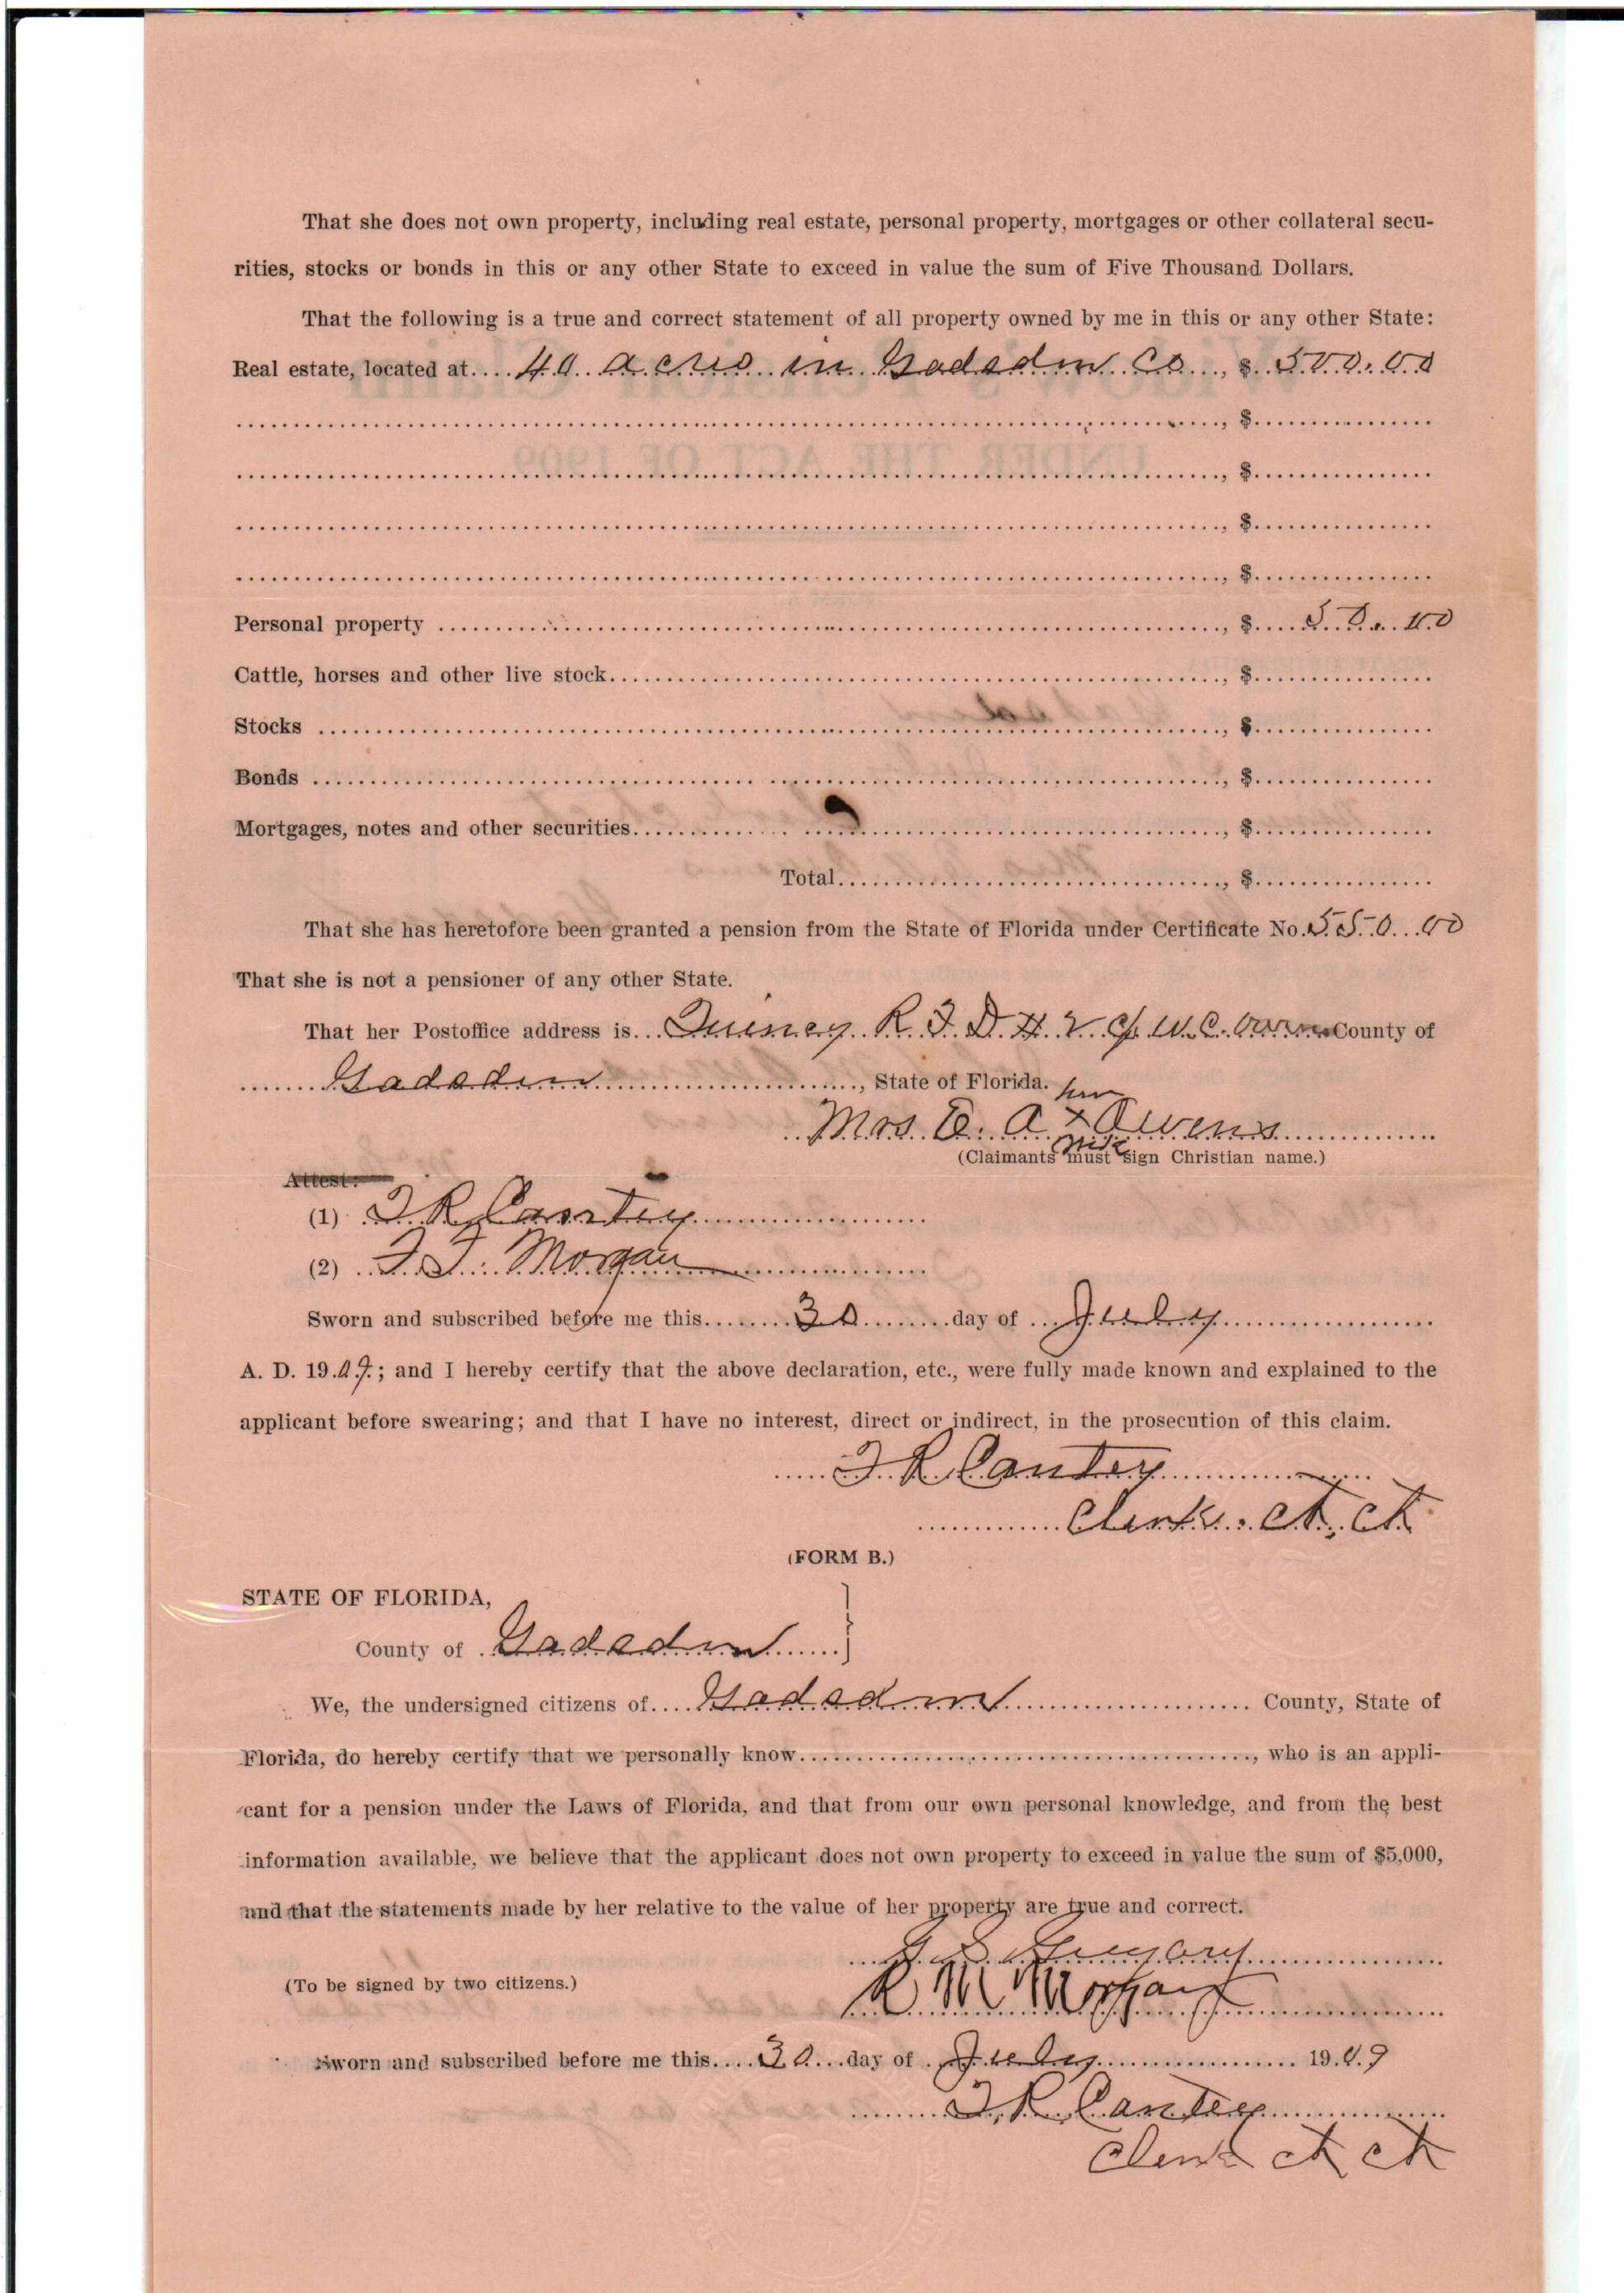 That she does not own property, including real estate, personal property, mortgages or other collateral secu-
rities, stocks or bonds in this or any other State to exceed in value the sum of Five Thousand Dollars.
That the following is a true and correct statement of all property owned by me in this or any other State:
Real estate, located at.... 40 acres in Gadsden Co ..., $ 500.00
, $
, $
, $
, $
Personal property ..., $ 50.00
Cattle, horses and other live stock..., $
Stocks ..., $
Bonds ..., $
Mortgages, notes and other securities..., $
Total..., $
That she has heretofore been granted a pension from the State of Florida under Certificate No. 550.00
That she is not a pensioner of any other State.
That her Postoffice address is... Quincy R.F.D # 2 c/ W.C. County of
Gadsden, State of Florida.
her
Mrs E. A x Owens
(Claimants must sign Christian name.)
Attest:
(1) T R Cantey
(2) Morgan
Sworn and subscribed before me this... 30 ...day of ... July
A. D. 19.09.; and I hereby certify that the above declaration, etc., were fully made known and explained to the
applicant before swearing; and that I have no interest, direct or indirect, in the prosecution of this claim.
T R Cantey
Clerk Ct. Ct
(FORM B.)
STATE OF FLORIDA,
County of Gadsden
We, the undersigned citizens of.... Gadsden ... County, State of
Florida, do hereby certify that we personally know..., who is an appli-
cant for a pension under the Laws of Florida, and that from our own personal knowledge, and from the best
information available, we believe that the applicant does not own property to exceed in value the sum of $5,000,
and that the statements made by her relative to the value of her property are true and correct.
Gregory
(To be signed by two citizens.)
R M Morgan
Sworn and subscribed before me this.... 30 ...day of . July ... 19.09
T. R. Cantey
Clerk Ct Ct